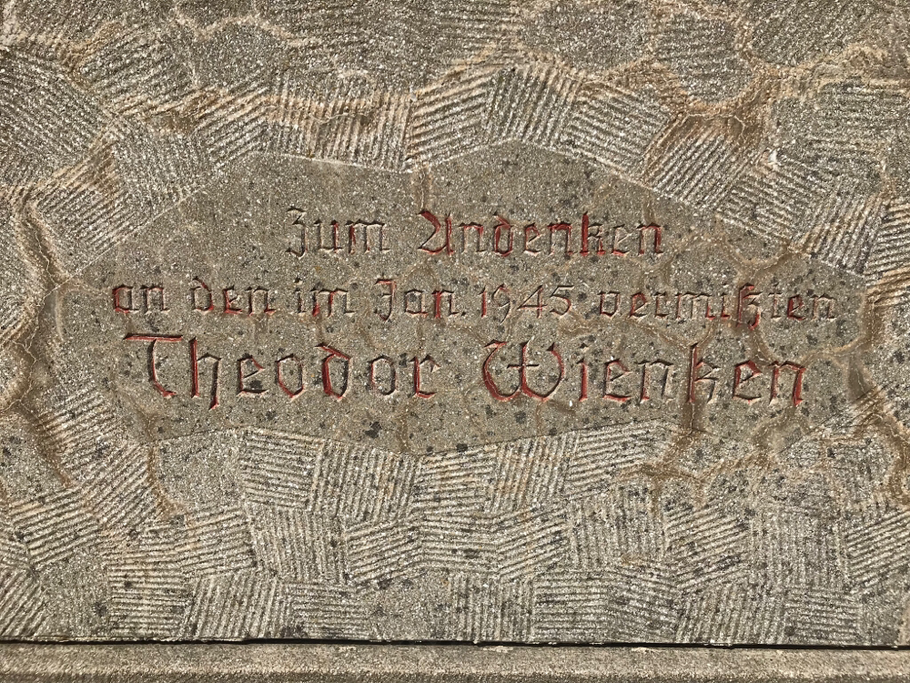 Zum Andenken
an den im Jan. 1945 vermißten
Theodor Wienken